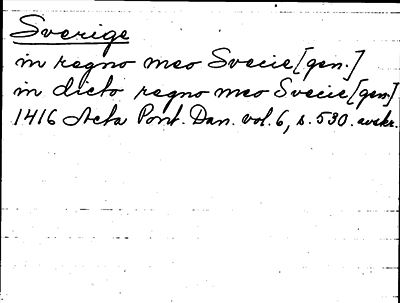 Sverige
in regno meo Svecie [gen.]
in dicto regno meo Svecie [gen.]
1416 Acta Pont. Dan. vol. 6, s. 530. avskr.